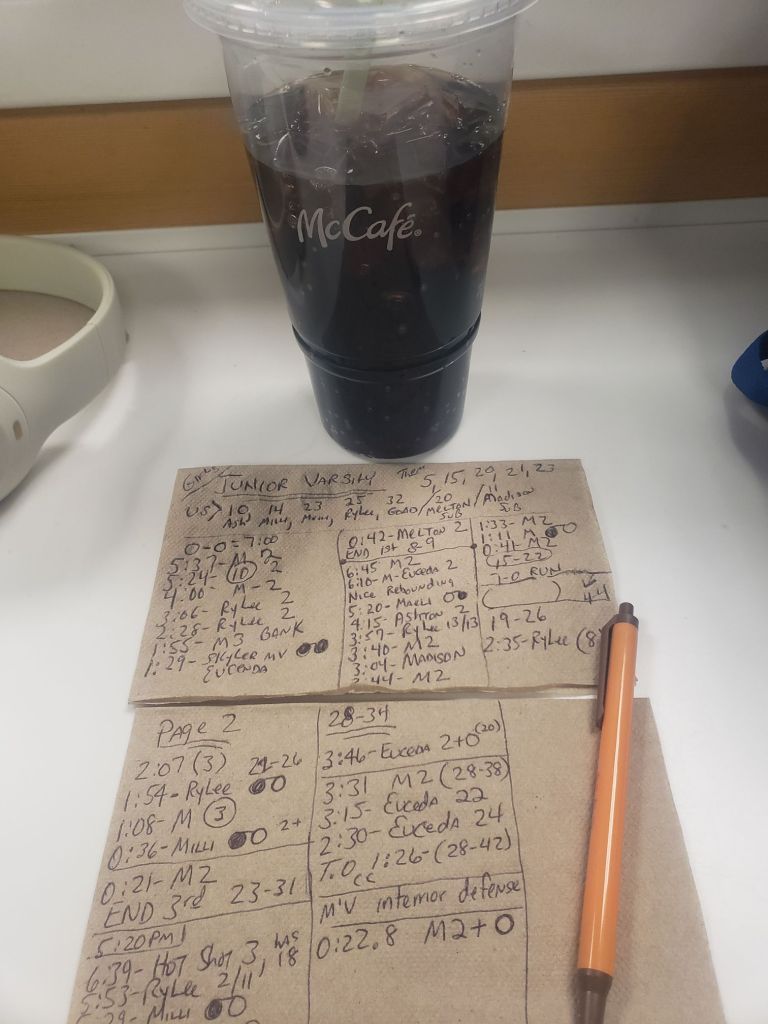 McCafé
Girls
JUNIOR VARSITY
Them 5, 15, 20, 21, 23
US> 10 14 23 25 32 20 11
Ash, Milli, Rylee, GOAD/MELTON/Madison
SUB SUB
0-0 = 7:00
5:37- M 2
5:24- 10 2
4:00- M-2
3:06- Rylee 2
2:28- Rylee 2
1:55- M3 BANK
1:29- SKYLER MV
EUCENDA
0:42- MELTON 2
END 1st 8-9
6:45 M2
6:10- M-Euceda 2
Nice Rebounding
5:20- MAELI
4:15- ASHTON 2
3:57- Rylee 13/13
3:40- M2
3:04- MADISON
:44- M2
1:33- M2
1:11 M
0:41 M2
15-22
7-0 RUN
44
19-26
2:35- Rylee (8)
PAGE 2
2:07 (3) 21-26
1:54- Rylee
1:08- M 3
0:36- Milli 2+
0:21- M2
END 3rd 23-31
5:20PM!
6:39- HOT SHOT 3, has 18
5:53- Rylee 2/11
:29- Milli
28-34
3:46- Euceda 2+0 (20)
3:31 M2 (28-38)
3:15- Euceda 22
2:30- Euceda 24
T.O. cc 1:26- (28-42)
M'V interior defense
0:22.8 M2+0